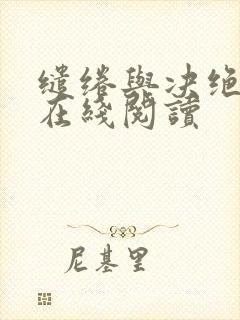 缱绻與决绝
在綫閱讀
尼基里